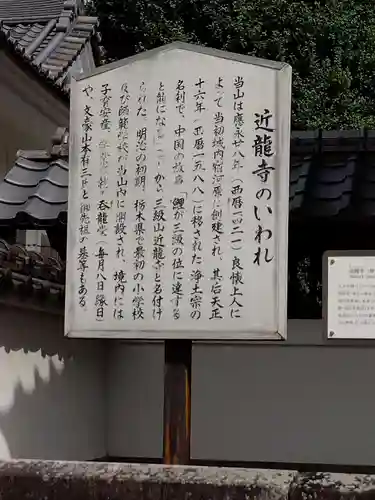 近龍寺のいわれ
当山は應永廿八年（西暦一四二一）良懐上人に
よって当初城内宿河原に創建され、其后天正
十六年（西暦一五八八）に移された浄土宗の
名刹で、中国の故事「鯉が三級の位に達する
と龍になる」から三級山近龍寺と名付け
られた。明治の初期、栃木県で最初の小学校
及び師範学校が当山内に開設され、境内には
子育安産、学業成就の呑龍堂（毎月八日縁日）
や、文豪山本有三氏と御先祖の墓等もある。